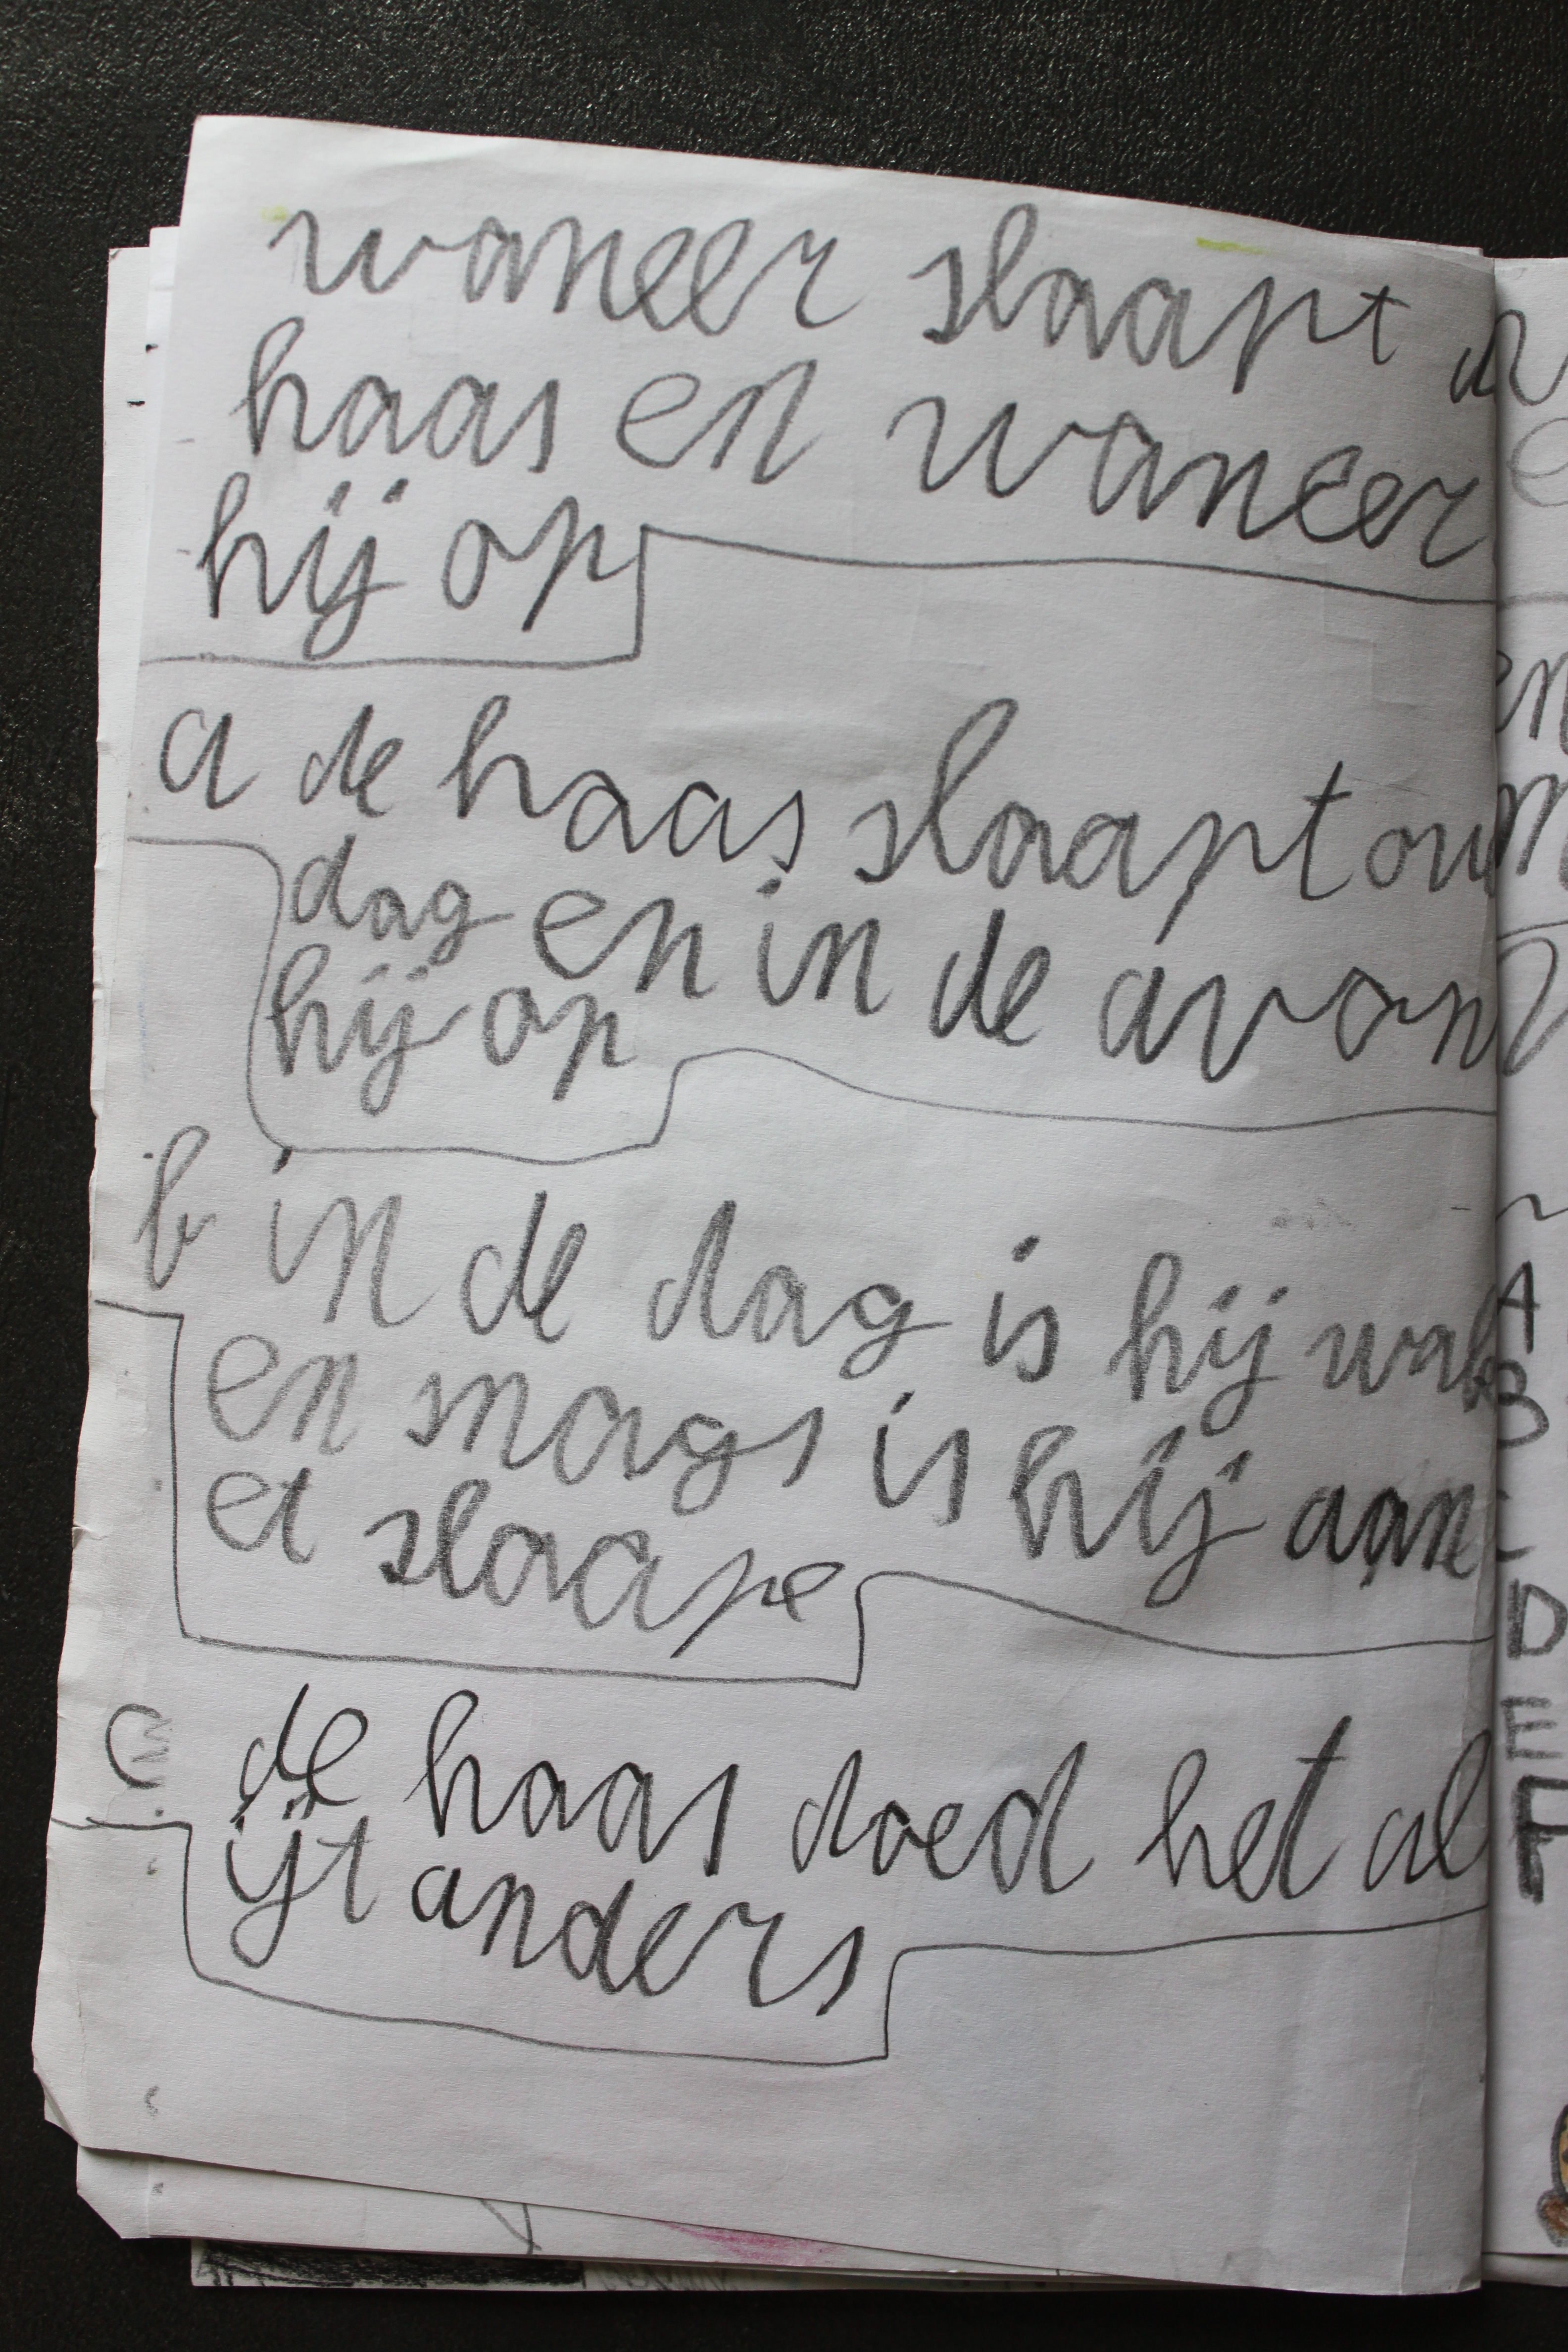 waneer slaapt de
haas en waneer
hij op
a de haas slaapt
dag en in de avon
hij op
b in de dag is hij wak
en snags is hij aan
et slaape
c de haas doed het al
ijt anders
A
B
C
D
E
F